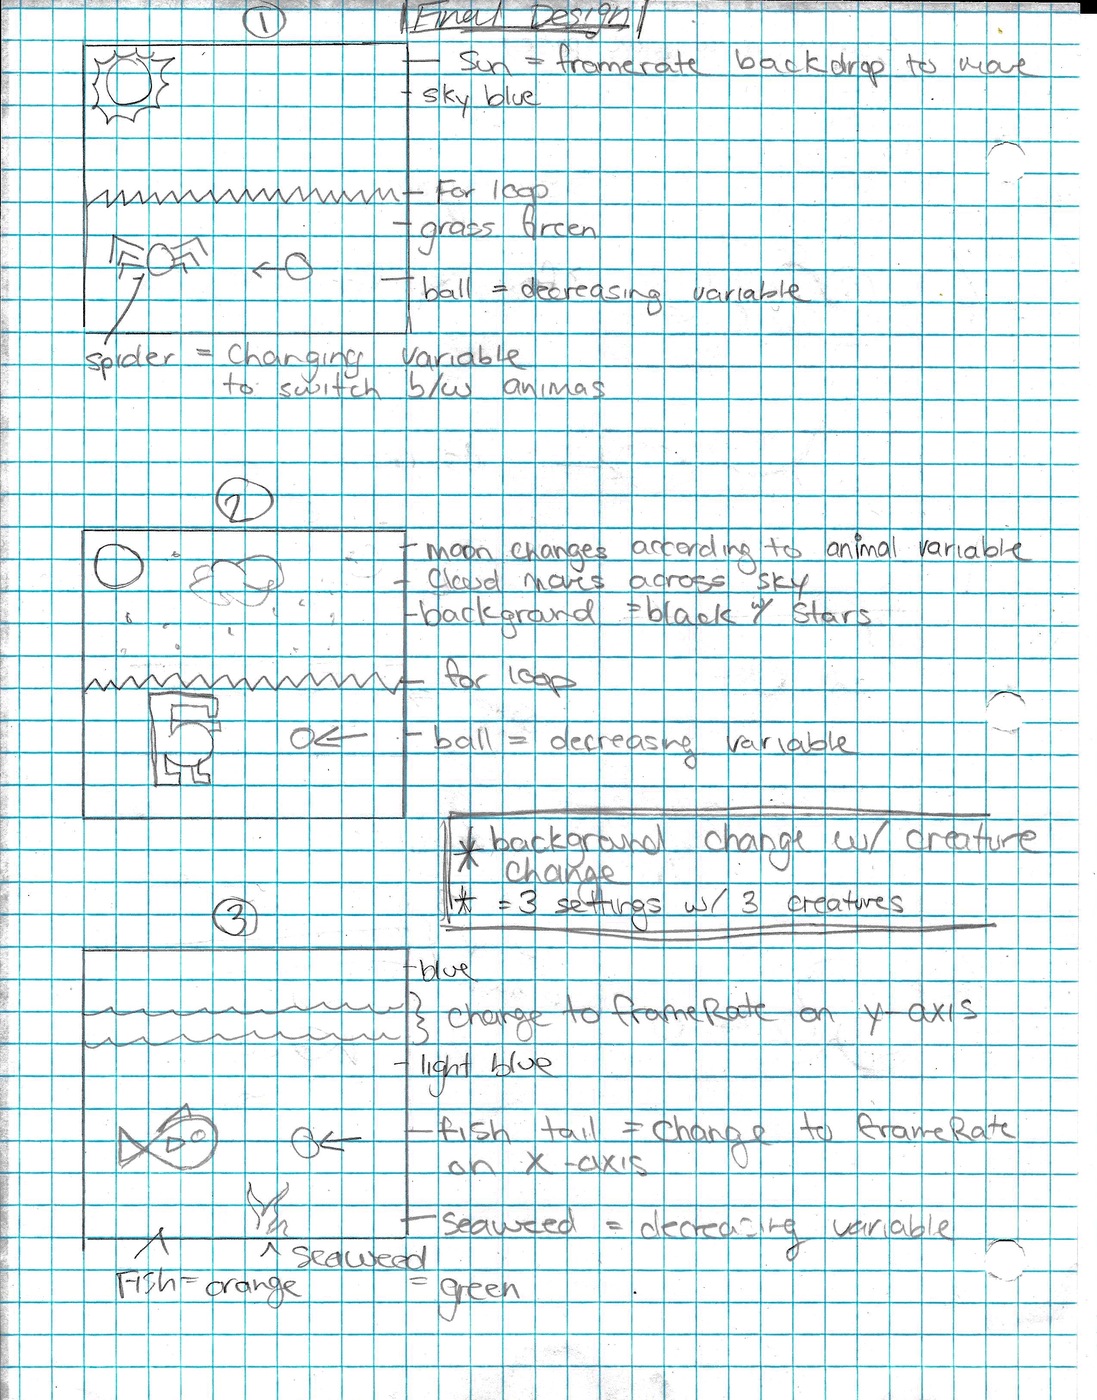 Final Design
1
- Sun = framerate backdrop to move
- sky blue
- For loop
- grass Green
- ball = decreasing variable
spider = Changing variable
to switch b/w animas
2
- moon changes according to animal variable
- cloud moves across sky
- background = black w/ stars
- for loop
- ball = decreasing variable
* background change w/ creature
change
* = 3 settings w/ 3 creatures
3
- blue
} change to frameRate on y-axis
- light blue
- fish tail = change to frameRate
on x-axis
- seaweed = decreasing variable
^ seaweed
Fish = orange
= green